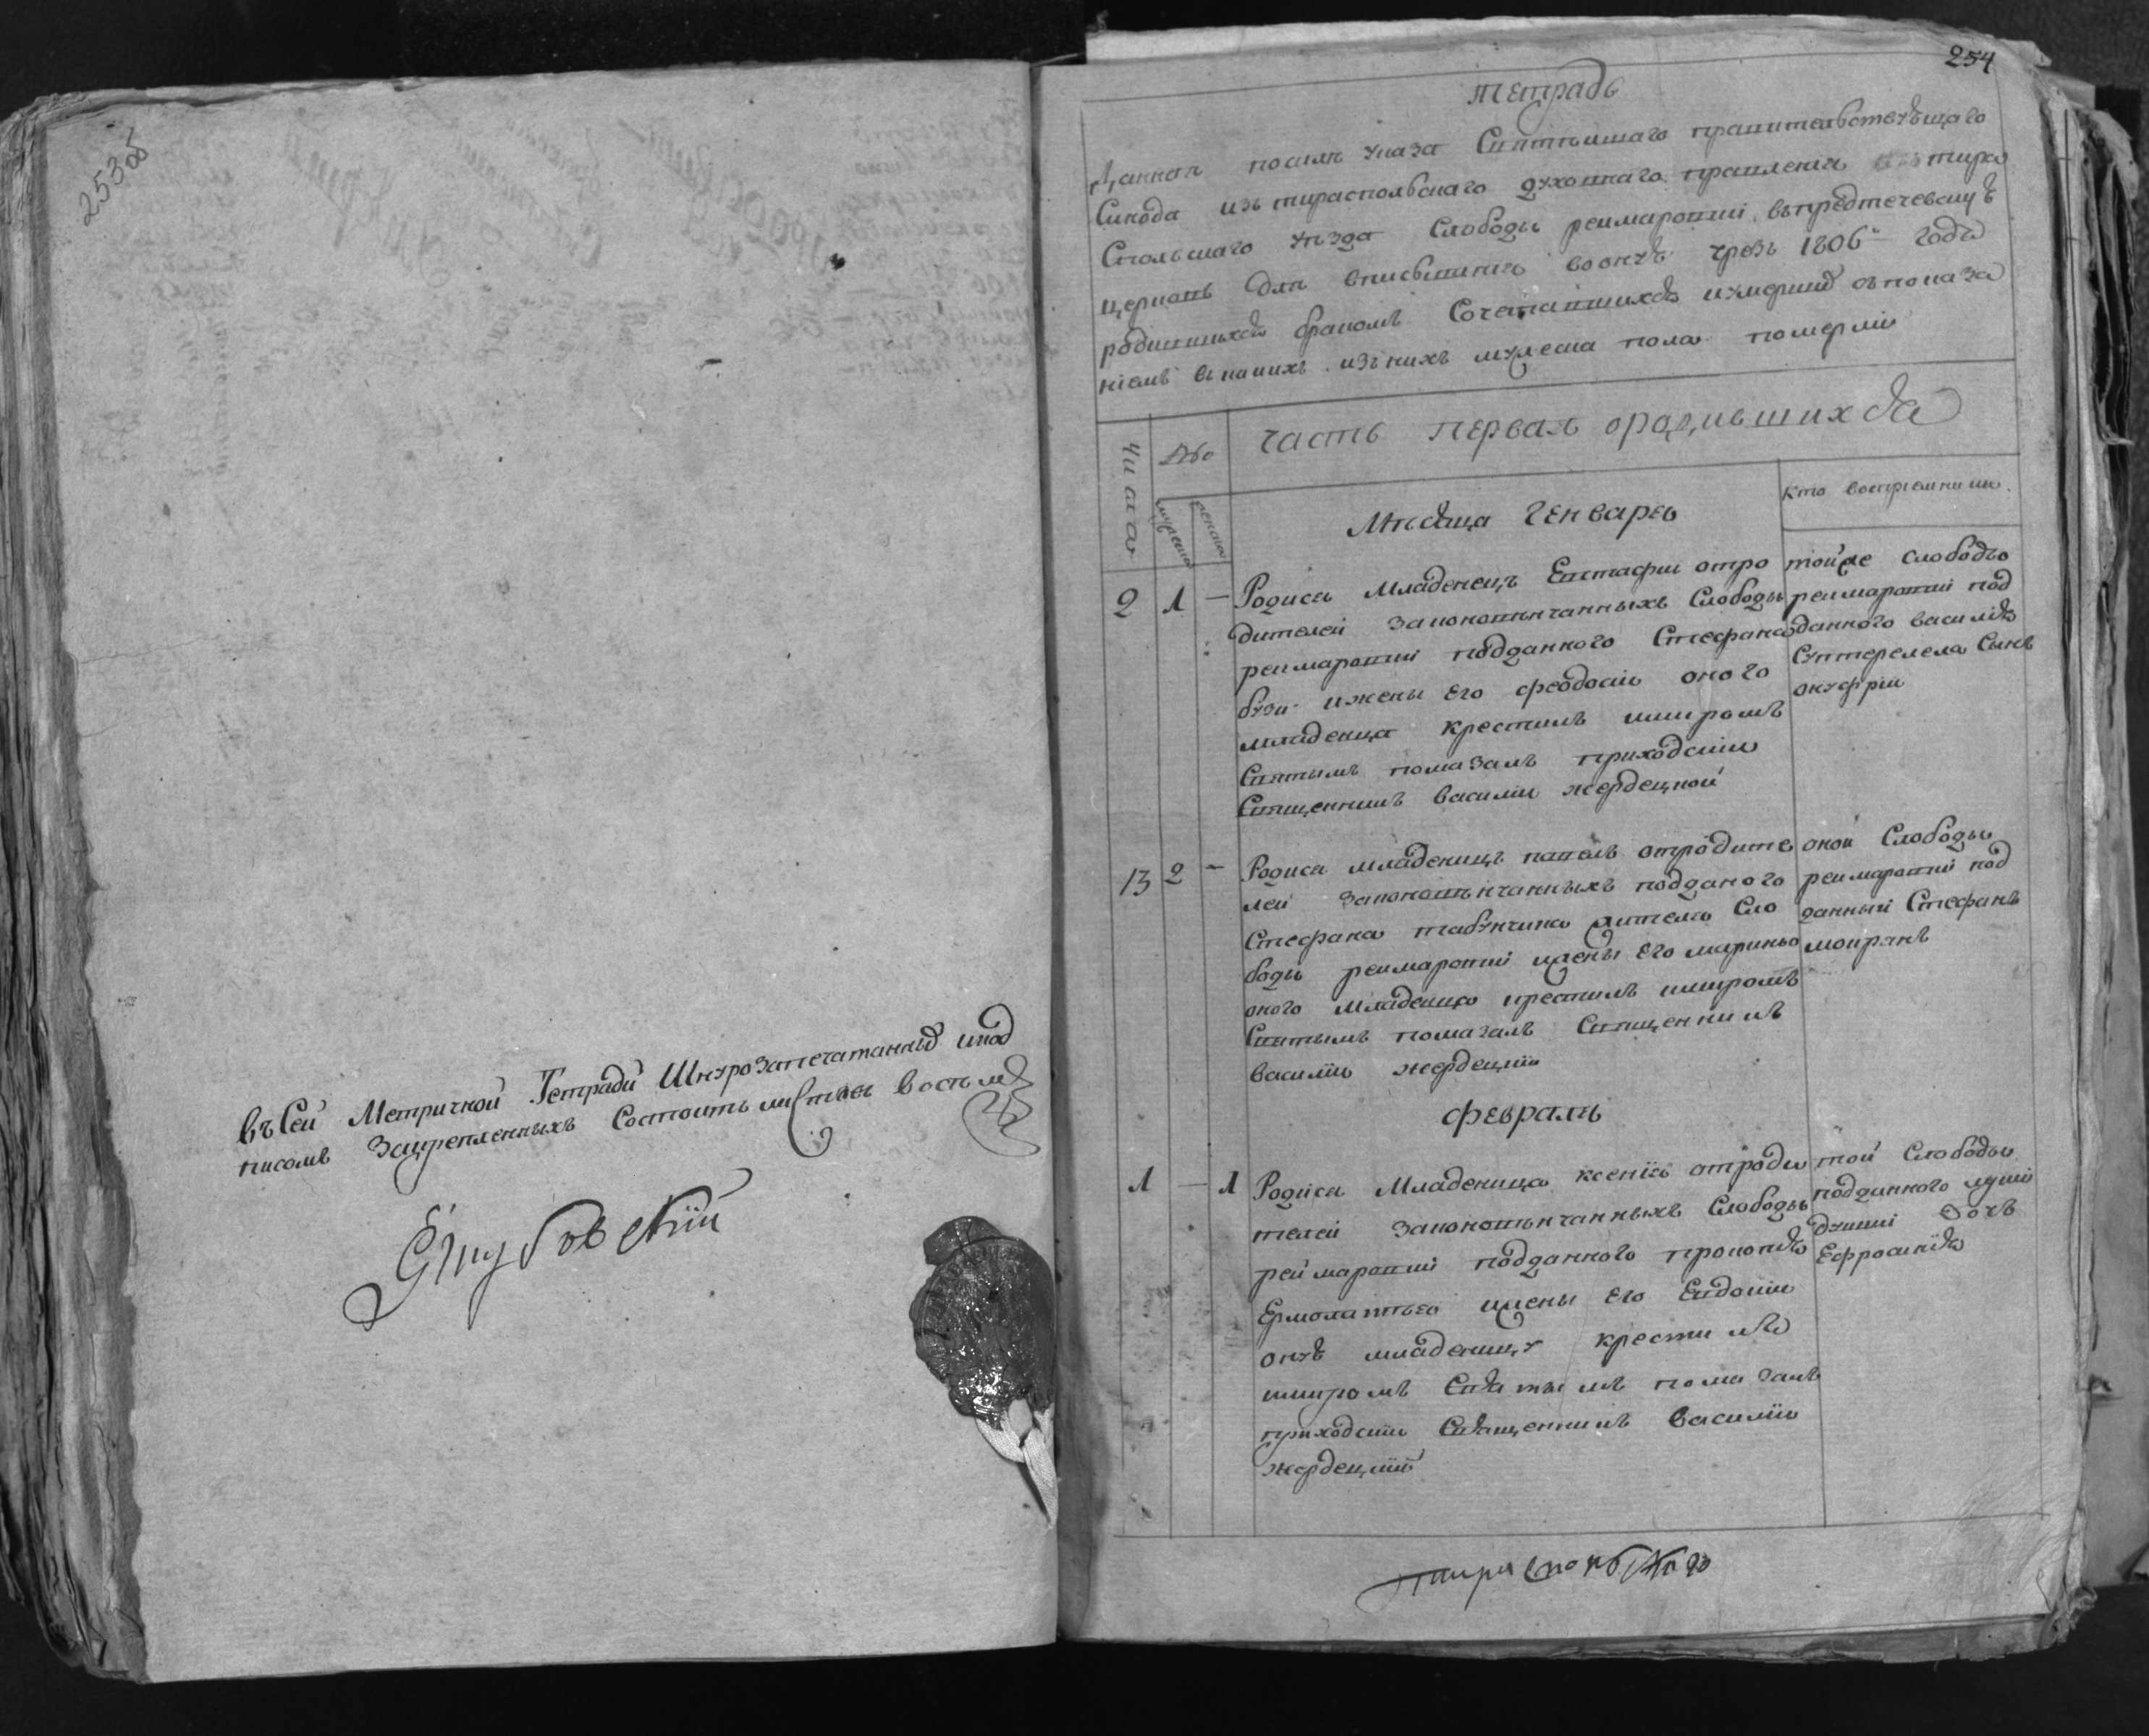 253об
въ Сей Метричной Тетради Шнурозапечатанныхъ и под
писомъ Закрепленныхъ Состоитъ листовъ восемь
254
тетрадь
Данная по силѣ указа Святѣйшаго правителствующаго
Синода изъ тираспольскаго духовнаго правленія тира
спольскаго уѣзда Слободы реймаровки въ предтечевску
церковь для вписыванія во онуъ чрезъ 1806й годъ
родившихся бракомъ Сочетавшихся и умершихъ съ показа
ніемъ в какихъ изъ нихъ мужеска пола померли
Числа
часть первая о родившихся
мужеска
женска
Мѣсяца Генваря
кто воспріемники
2 1 — Родися Младенецъ Евстафии от ро
дителей законовѣнчанныхъ Слободы
реимаровки подданного Стефана
бузи и жены его феодосіи оного
младенца крестилъ и миромъ
Святымъ помазалъ приходскіи
Священникъ василіи жердецкой
той же слободы
реимаровки под
данного василія
Сунтерелела Сынъ
онуфріи
13 2 — Родися младенецъ павелъ от родите
леи законовѣнчанныхъ подданого
Стефана табунчика жителя Сло
боды реимаровки и жены его марины
оного младенца крестилъ и миромъ
Святымъ помазалъ Священникъ
василіи жердецкіи
оной Слободы
реимаровки под
данный Стефанъ
мокрянъ
февраль
1 — 1 Родися Младеница ксенія от роди
телей законовѣнчанныхъ Слободы
реймаровки подданного прокопія
Ермолатьева и жены его Евдокіи
онуъ младеницу крестилъ
и миромъ Святымъ помазалъ
приходскіи Священникъ василіи
жердецкій
той Слободы
подданного луки
дочъ
Ефросинія
тираспольского